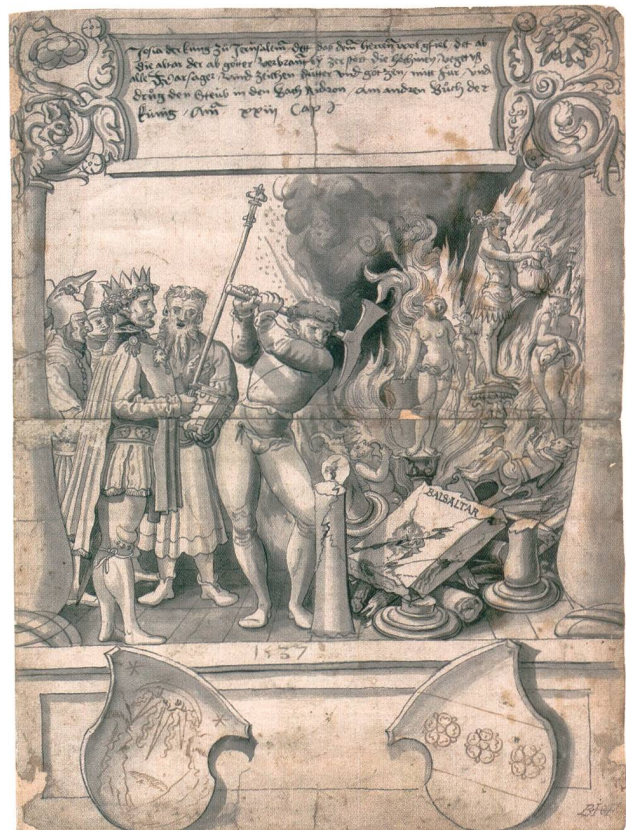 Josia der küng zů Jerusalem der das dem herren wol gfiel, det ab
die altar der ab götter verbrant
alle warsager und zeichen dütter und götzen, mitt für und
drůg den Steüb in den bach Kidron, Am andren Bůch der
küng, Am xxiii Cap
BALSALTAR
1537